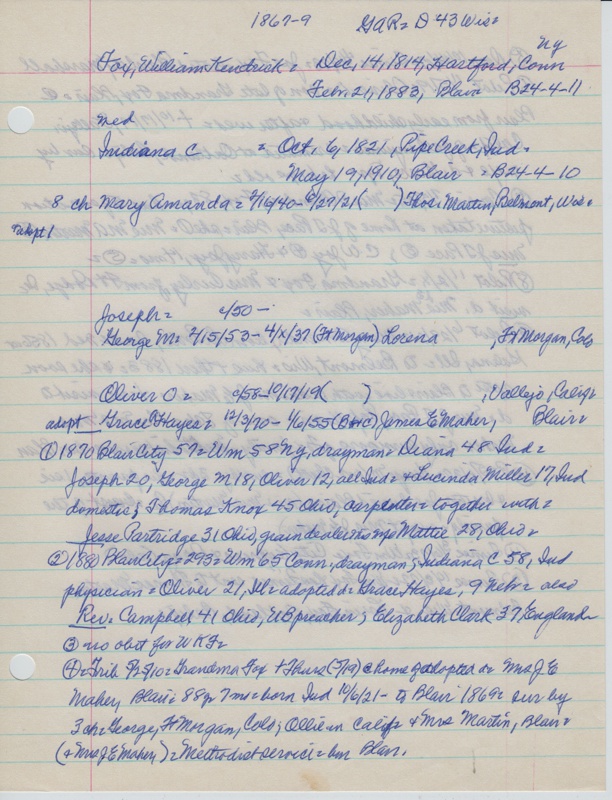 1867-9 GAR = D 43 Wis =
NY
Fox, William Kendrick = Dec, 14, 1814, Hartford, Conn
Feb. 21, 1883, Blair B24-4-11
med
Indiana C = Oct, 6, 1821, Pipe Creek, Ind =
May 19, 1910, Blair = B24-4-10
8 ch Mary Amanda = 9/16/40- /29/21( ) Thos. Martin, Belmont, Wis =
adopt 1
Joseph = c/50 -
George M = 2/15/53 - 4/x/37 (Ft Morgan) Lorena , Ft Morgan, Colo
Oliver O = c/58-10/17/19( ) , Vallejo, Calif =
adopt Grace Hayes = 12/3/70 - 1/6/55 (B+C) James E Maher, Blair =
① 1870 Blair City 57 = Wm 58 NY, drayman = Diana 48 Ind =
Joseph 20, George M 18, Oliver 12, all Ind = + Lucinda Miller 17, Ind
domestic; Thomas Knox 45 Ohio, carpenter = together with =
Jesse Partridge 31 Ohio, grain dealer = no mp Mattie 28, Ohio =
② 1880 Blair City = 293 = Wm 65 Conn, drayman; Indiana C 58, Ind
physician = Oliver 21, Ill = adopted d = Grace Hayes, 9 Nebr = also
Rev = Campbell 41 Ohio, UB preacher; Elizabeth Clark 37, England =
③ no obit for WKF =
④ = Trib 5/ /10 = Grandma Fox + Thurs (5/19) @ home of adopted d = Mrs J E
Maher, Blair = 88 yr 7 m = born Ind 10/6/21 - to Blair 1869 = sur by
3 ch = George, Ft Morgan, Colo; Ollie in Calif + Mrs Martin, Blair =
(+ Mrs J E Maher) = Methodist service = bur Blair.